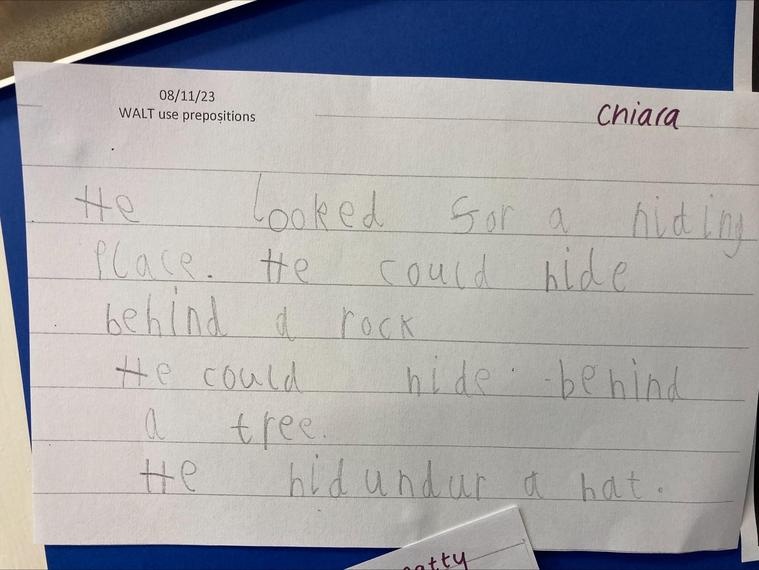 08/11/23
WALT use prepositions
Chiara
He looked for a hiding
place. He could hide
behind a rock
He could hide behind
a tree.
He hid undur a hat.